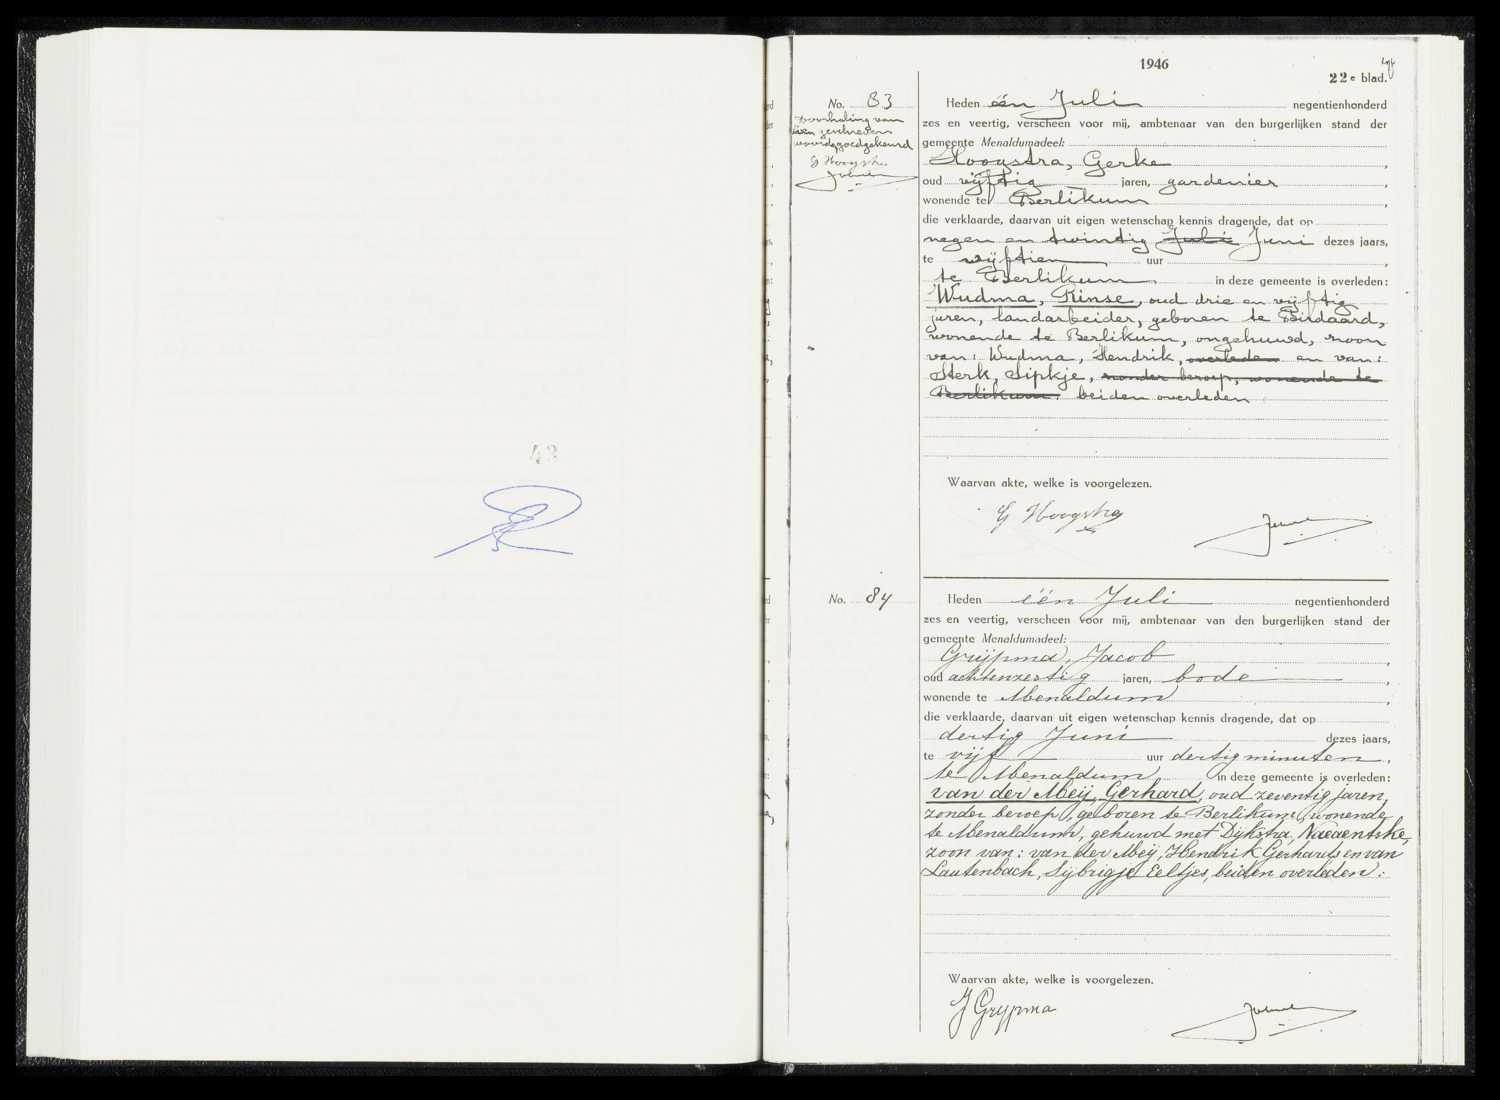 1946
22e blad.
No. 83
Doorhaling van
één geschreven
woord goedgekeurd
G Hoogstra
Heden één Juli negentienhonderd
zes en veertig, verscheen voor mij, ambtenaar van den burgerlijken stand der
gemeente Menaldumadeel:
Hoogstra, Gerke,
oud vijftig jaren, gardenier,
wonende te Berlikum,
die verklaarde, daarvan uit eigen wetenschap kennis dragende, dat op
negen en twintig Juli Juni dezes jaars,
te vijftien uur,
te Berlikum in deze gemeente is overleden:
Wudma, Rinse, oud drie en vijftig
jaren, landarbeider, geboren te Birdaard,
wonende te Berlikum, ongehuwd, zoon
van: Wudma, Hendrik, overleden en van:
Sterk, Sipkje, zonder beroep, wonende te
Berlikum. beiden overleden
Waarvan akte, welke is voorgelezen.
G Hoogstra
43
No. 84
Heden één Juli negentienhonderd
zes en veertig, verscheen voor mij, ambtenaar van den burgerlijken stand der
gemeente Menaldumadeel:
Grijpma, Jacob,
oud achtenzestig jaren, bode,
wonende te Menaldum,
die verklaarde, daarvan uit eigen wetenschap kennis dragende, dat op
dertig Juni dezes jaars,
te vijf uur dertig minuten,
te Menaldum in deze gemeente is overleden:
van der Meij, Gerhard, oud zeventig jaren,
zonder beroep, geboren te Berlikum, wonende
te Menaldum, gehuwd met Dijkstra,
zoon van: van der Meij, Hendrik Gerhards en van
Lautenbach, Sijbrigje Eeltjes, beiden overleden.
Waarvan akte, welke is voorgelezen.
J Grijpma